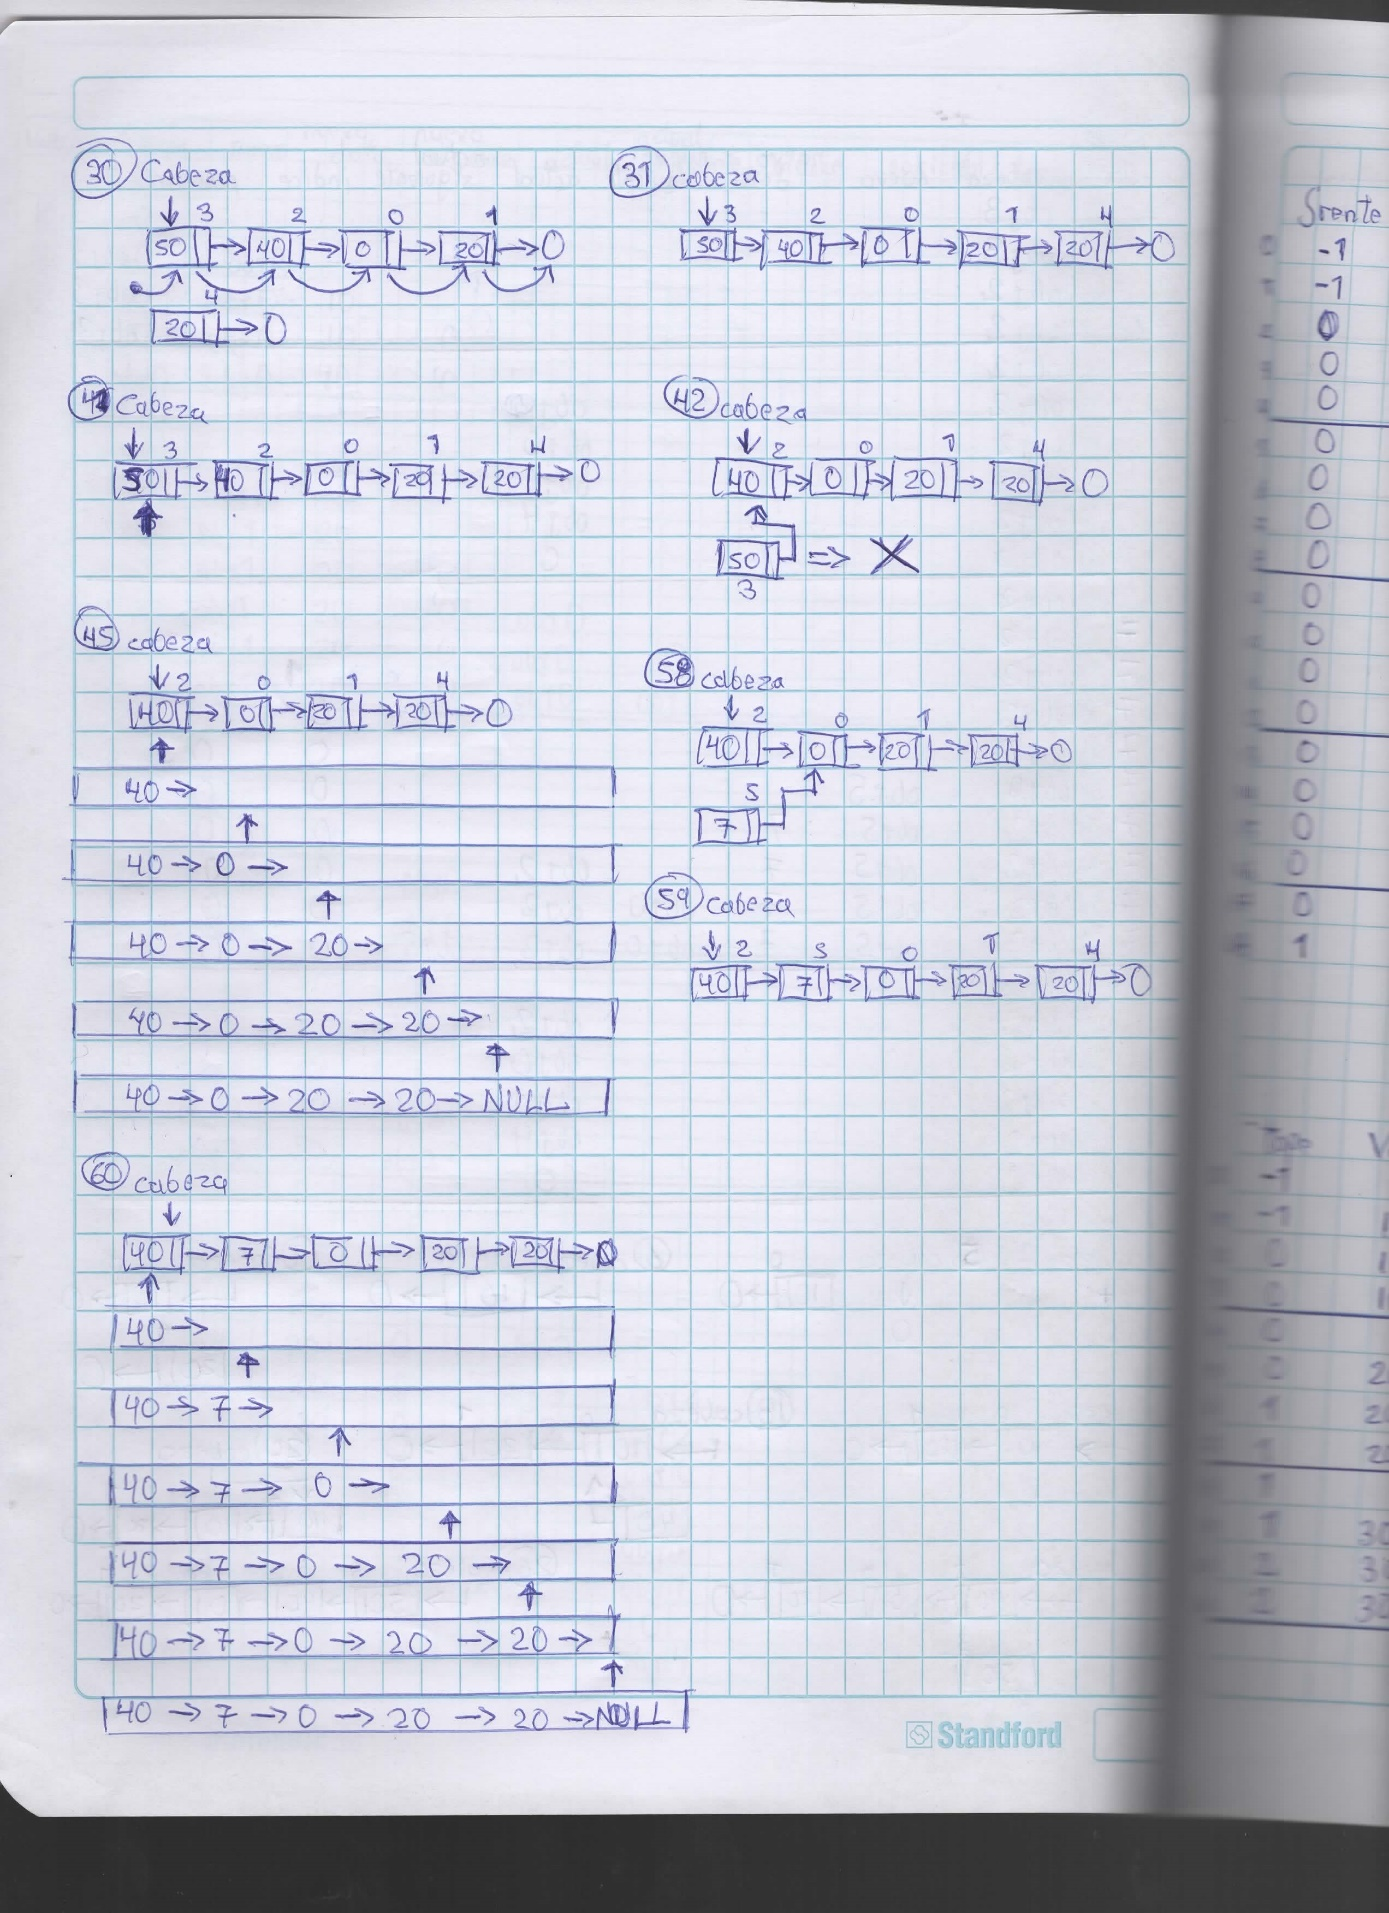 30 Cabeza
3 2 0 1
50 → 40 → 0 → 20 → 0
4
20 → 0
31 cabeza
3 2 0 1 4
50 → 40 → 0 → 20 → 20 → 0
41 Cabeza
3 2 0 1 4
50 → 40 → 0 → 20 → 20 → 0
42 cabeza
2 0 1 4
40 → 0 → 20 → 20 → 0
50 => X
3
45 cabeza
2 0 1 4
40 → 0 → 20 → 20 → 0
40 →
40 → 0 →
40 → 0 → 20 →
40 → 0 → 20 → 20 →
40 → 0 → 20 → 20 → NULL
58 cabeza
2 0 1 4
40 → 0 → 20 → 20 → 0
5
7
59 cabeza
2 5 0 1 4
40 → 7 → 0 → 20 → 20 → 0
60 cabeza
40 → 7 → 0 → 20 → 20 → 0
40 →
40 → 7 →
40 → 7 → 0 →
40 → 7 → 0 → 20 →
40 → 7 → 0 → 20 → 20 →
40 → 7 → 0 → 20 → 20 → NULL
Standford
Srente
-1
-1
0
0
0
0
0
0
0
0
0
0
0
0
0
0
0
0
1
-1
-1
0
0
0
0
1
1
1
1 30